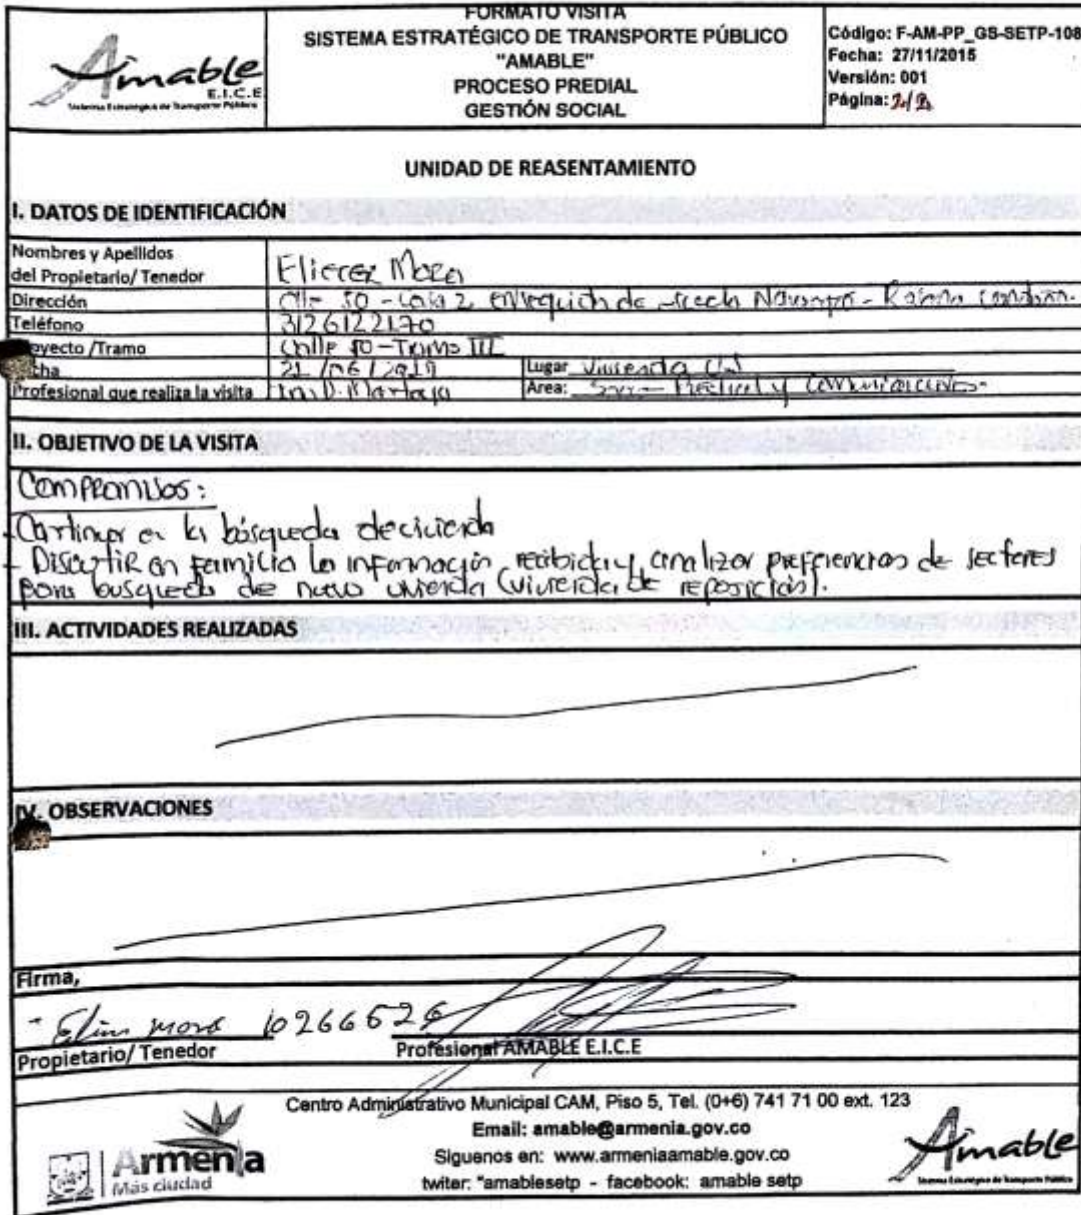 Amable
E.I.C.E
Sistema Estratégico de Transporte Público
FORMATO VISITA
SISTEMA ESTRATÉGICO DE TRANSPORTE PÚBLICO
"AMABLE"
PROCESO PREDIAL
GESTIÓN SOCIAL
Código: F-AM-PP_GS-SETP-108
Fecha: 27/11/2015
Versión: 001
Página: 2/2
UNIDAD DE REASENTAMIENTO
I. DATOS DE IDENTIFICACIÓN
Nombres y Apellidos
del Propietario/ Tenedor Eliecer Mora
Dirección Clle 50 - Casa 2
Teléfono 3126122170
oyecto /Tramo Calle 50 - Tramo III
cha 21/06/2019 Lugar Vivienda
Profesional que realiza la visita Area: Socio- Predial y Comunicaciones
II. OBJETIVO DE LA VISITA
Compromisos:
- Continuar en la búsqueda de vivienda
- Discutir en familia la información recibida y analizar preferencias de sectores
para busqueda de nueva vivienda (vivienda de reposición).
III. ACTIVIDADES REALIZADAS
IV. OBSERVACIONES
Firma,
mora 10266626
Propietario/ Tenedor Profesional AMABLE E.I.C.E
Centro Administrativo Municipal CAM, Piso 5, Tel. (0+6) 741 71 00 ext. 123
Email: amable@armenia.gov.co
Siguenos en: www.armeniaamable.gov.co
twiter: "amablesetp - facebook: amable setp
Armenia
Más ciudad
Amable
Sistema Estratégico de Transporte Público